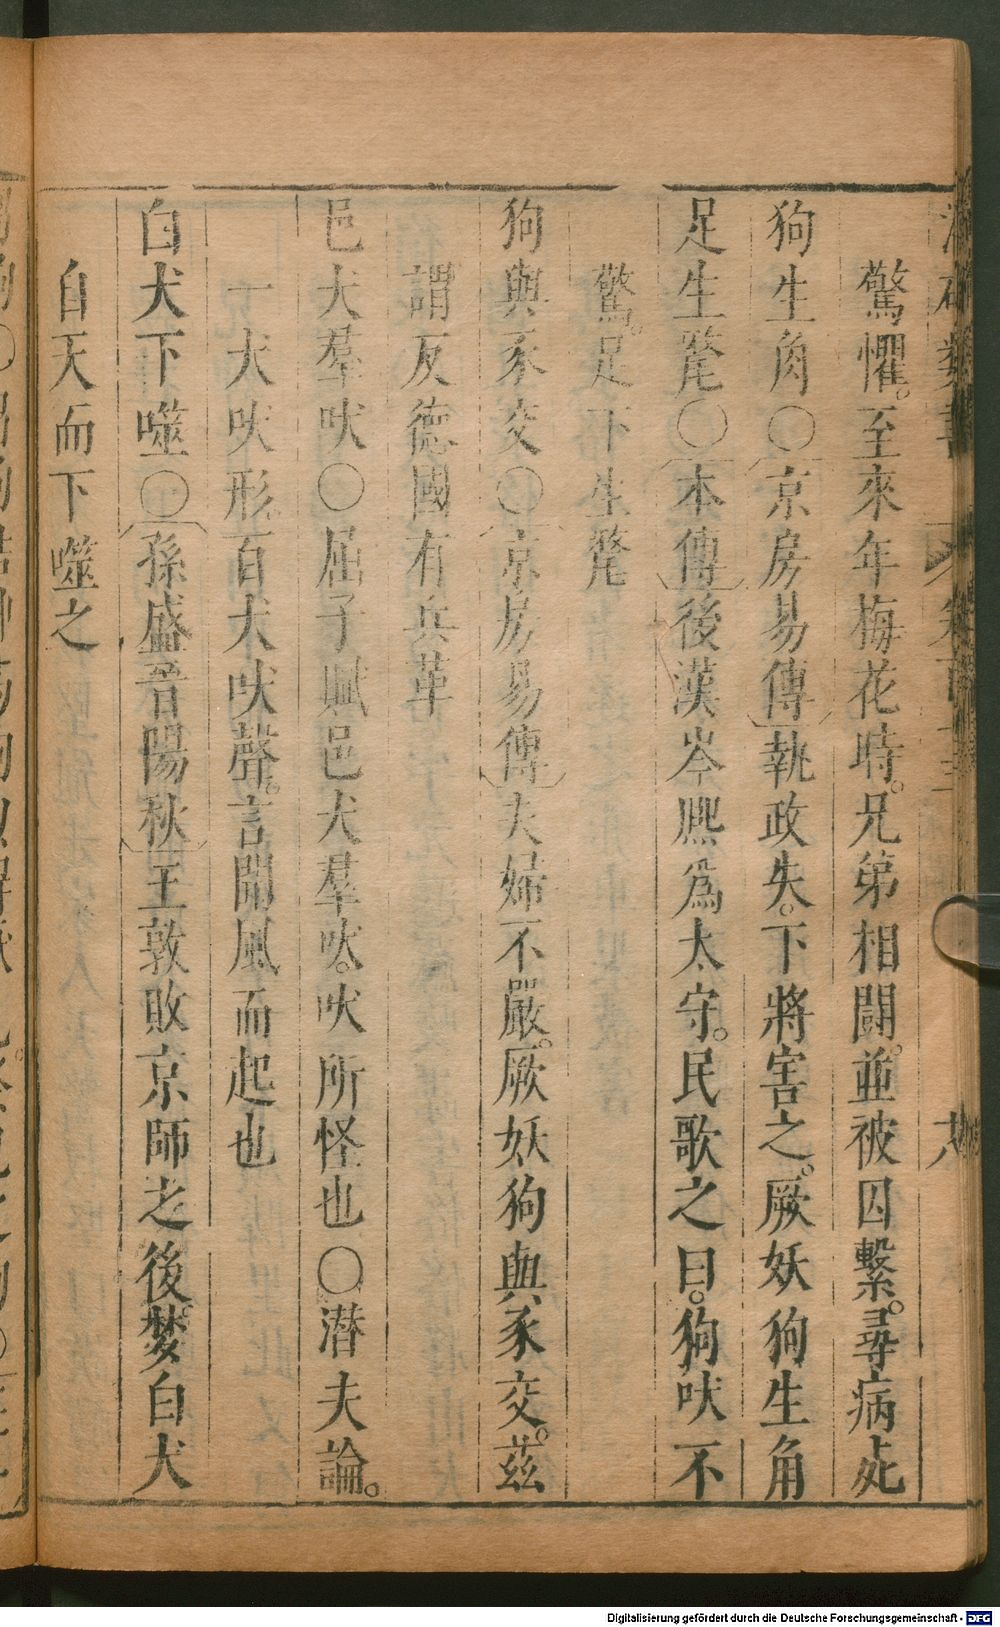 驚懼。至來年梅花時。兄弟相鬬。並被囚繫。尋病死
狗生角○京房易傳執政失。下將害之。厥妖狗生角
足生氂○本傳後漢岑熈為太守。民歌之曰。狗吠不
驚。足下生氂
狗與豕交○京房易傳夫婦不嚴。厥妖狗與豕交。茲
謂反德國有兵革
邑犬羣吠○屈子賦邑犬羣吠。吠所怪也○潜夫論。
一犬吠形百犬吠聲。言聞風而起也
白犬下噬○孫盛晉陽秋王敦敗京師之後夢白犬
自天而下噬之
Digitalisierung gefördert durch die Deutsche Forschungsgemeinschaft - DFG